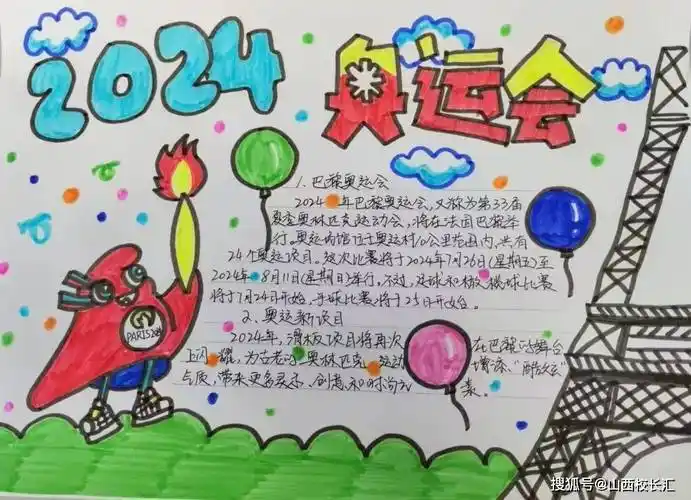 2024 奥运会
1. 巴黎奥运会
2024年巴黎奥运会，又称为第33届
夏季奥林匹克运动会，将在法国巴黎举
行。奥运场馆位于奥运村10公里范围内，共有
24个奥运项目。这次比赛将于2024年7月26日(星期五)至
2024年8月11日(星期日)举行。不过，足球和橄榄球比赛
将于7月24日开始，手球比赛将于25日开始。
2、奥运新项目
2024年，滑板项目将再次在巴黎的舞台
上闪耀，为古老的奥林匹克运动增添“酷炫”
气质，带来更多灵感，创意和时尚元素。
PARIS 2024
搜狐号@山西校长汇